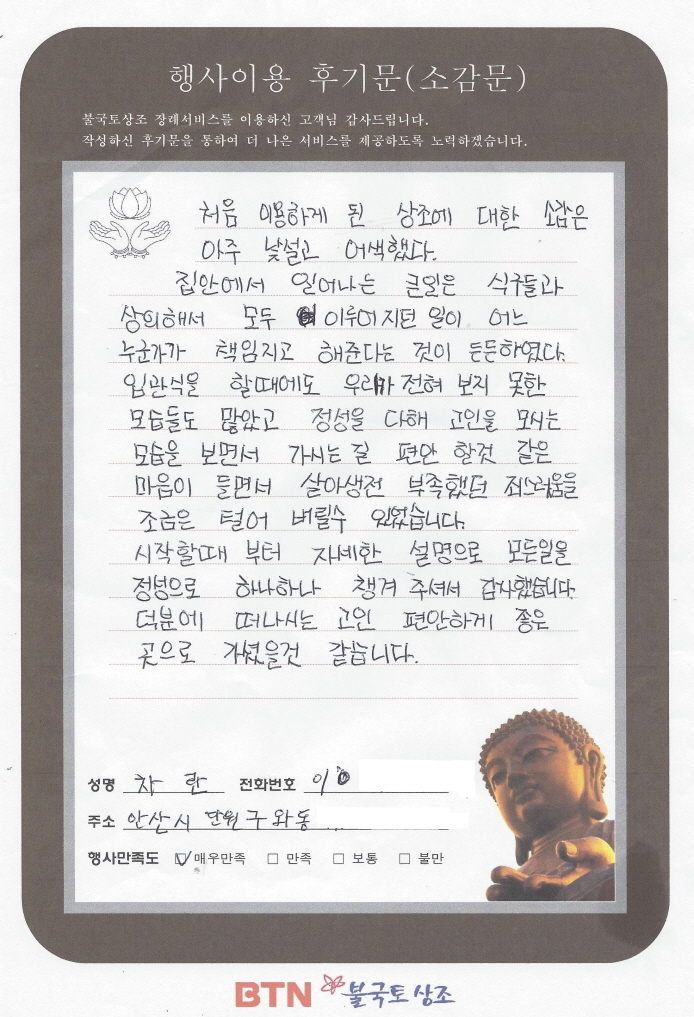 행사이용 후기문(소감문)
불국토상조 장례서비스를 이용하신 고객님 감사드립니다.
작성하신 후기문을 통하여 더 나은 서비스를 제공하도록 노력하겠습니다.
처음 이용하게 된 상조에 대한 소감은
아주 낯설고 어색했다.
집안에서 일어나는 큰일은 식구들과
상의해서 모두 이루어지던 일이 어느
누군가가 책임지고 해준다는 것이 든든하였다.
입관식을 할때에도 우리가 전혀 보지 못한
모습들도 많았고 정성을 다해 고인을 모시는
모습을 보면서 가시는 길 편안 할것 같은
마음이 들면서 살아생전 부족했던 죄스러움을
조금은 털어 버릴수 있었습니다.
시작할때 부터 자세한 설명으로 모든일을
정성으로 하나하나 챙겨 주셔서 감사했습니다.
덕분에 떠나시는 고인 편안하게 좋은
곳으로 가셨을것 같습니다.
성명 차 란 전화번호
주소 안산시 단원구 와동 ...
행사만족도 매우만족 만족 보통 불만
BTN 불국토상조